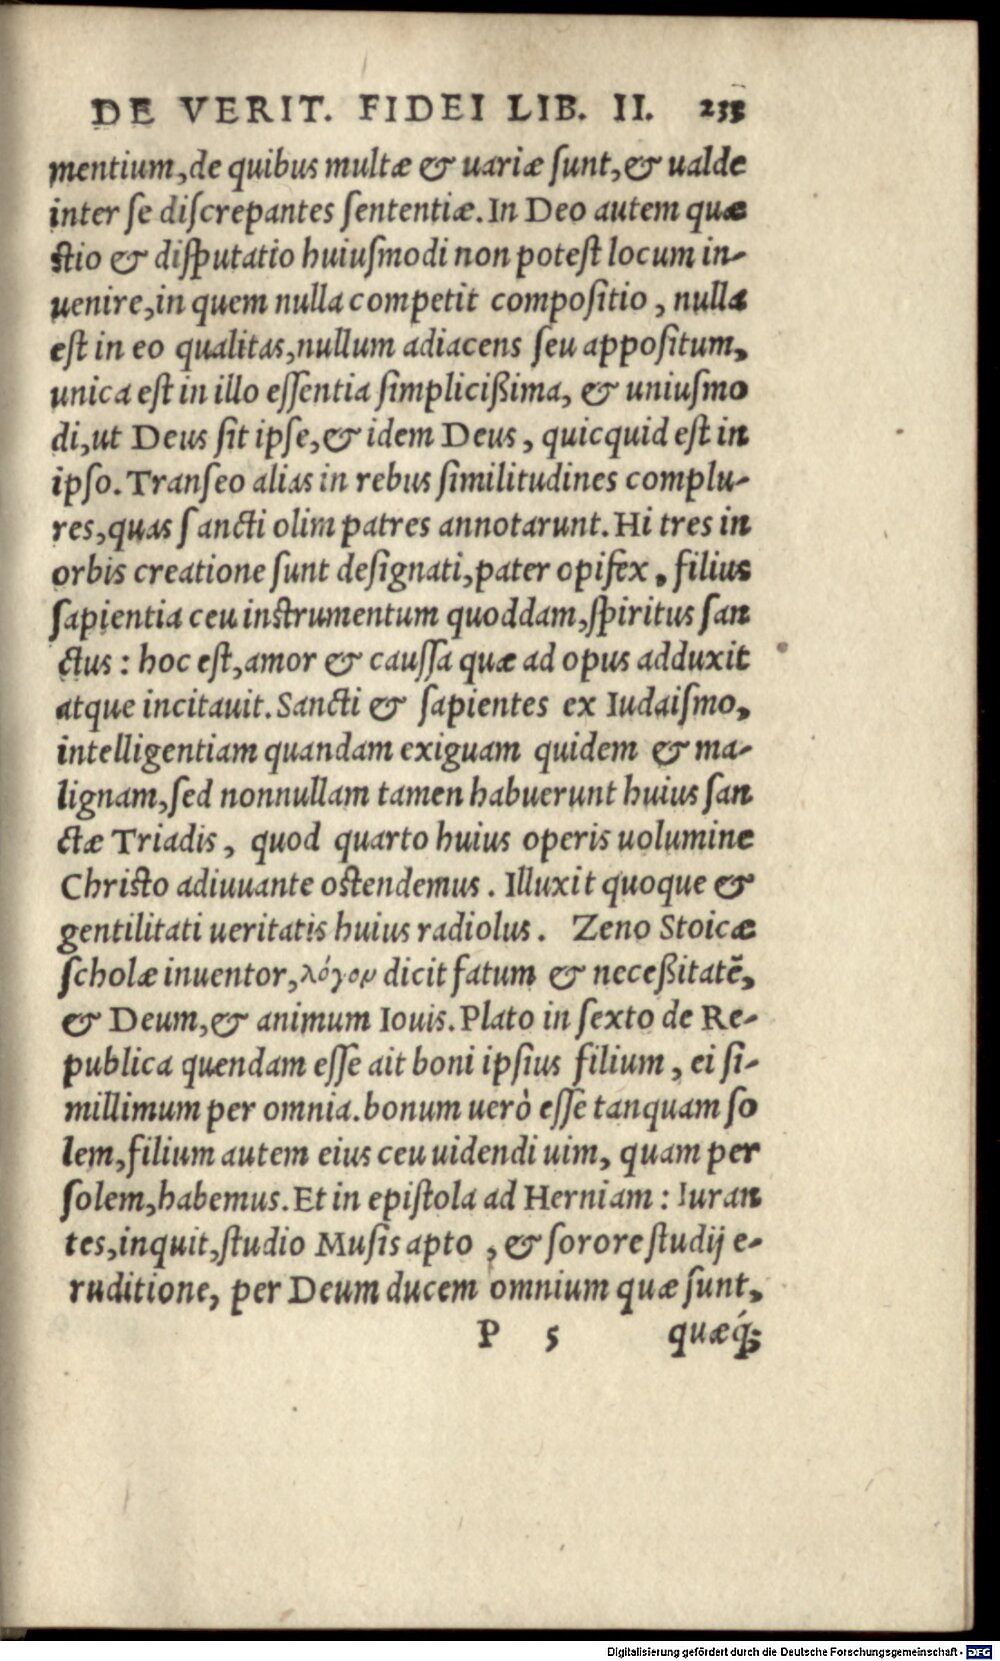 DE VERIT. FIDEI LIB. II. 233
mentium, de quibus multæ & uariæ ſunt, & ualde
inter ſe diſcrepantes ſententiæ. In Deo autem quæ
ſtio & diſputatio huiuſmodi non poteſt locum in-
uenire, in quem nulla competit compoſitio, nulla
eſt in eo qualitas, nullum adiacens ſeu appoſitum,
unica eſt in illo eſſentia ſimplicißima, & uniuſmo
di, ut Deus ſit ipſe, & idem Deus, quicquid eſt in
ipſo. Tranſeo alias in rebus ſimilitudines complu-
res, quas ſancti olim patres annotarunt. Hi tres in
orbis creatione ſunt deſignati, pater opifex, filius
ſapientia ceu inſtrumentum quoddam, ſpiritus ſan
ctus: hoc eſt, amor & cauſſa quæ ad opus adduxit
atque incitauit. Sancti & ſapientes ex Iudaiſmo,
intelligentiam quandam exiguam quidem & ma-
lignam, ſed nonnullam tamen habuerunt huius ſan
ctæ Triadis, quod quarto huius operis uolumine
Chriſto adiuuante oſtendemus. Illuxit quoque &
gentilitati ueritatis huius radiolus. Zeno Stoicæ
ſcholæ inuentor, λόγον dicit fatum & neceßitatē,
& Deum, & animum Iouis. Plato in ſexto de Re-
publica quendam eſſe ait boni ipſius filium, ei ſi-
millimum per omnia. bonum uerò eſſe tanquam ſo
lem, filium autem eius ceu uidendi uim, quam per
ſolem, habemus. Et in epiſtola ad Herniam: Iuran
tes, inquit, ſtudio Muſis apto, & ſorore ſtudij e-
ruditione, per Deum ducem omnium quæ ſunt,
P 5 quæq́;
Digitalisierung gefördert durch die Deutsche Forschungsgemeinschaft - DFG